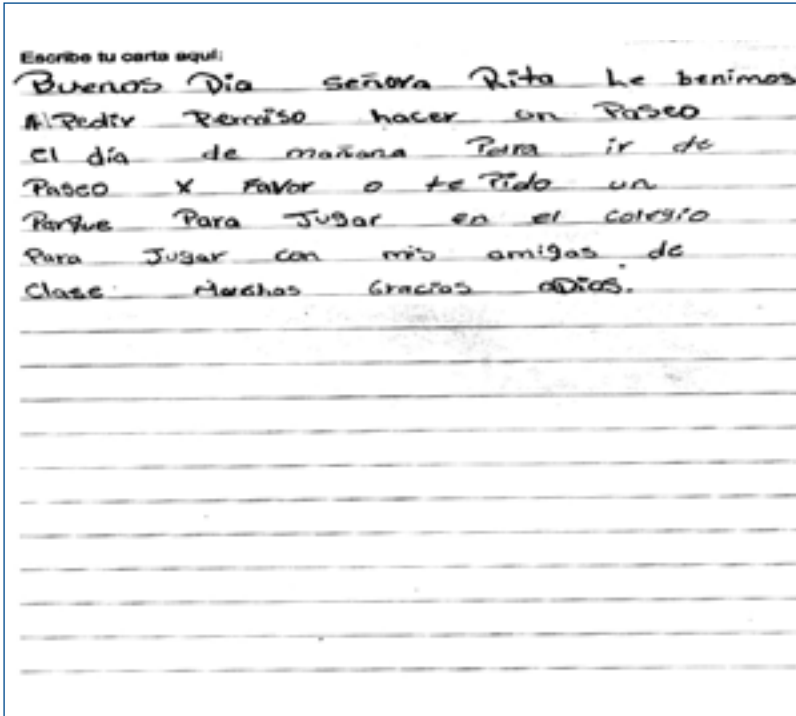 Escribe tu carta aquí:
Buenos Dia señora Rita Le benimos
A Pedir Permiso hacer un Paseo
el día de mañana Para ir de
Paseo x Favor o te Pido un
Parque Para Jugar en el colegio
Para Jugar con mis amigas de
Clase Muchas Gracias aDios.